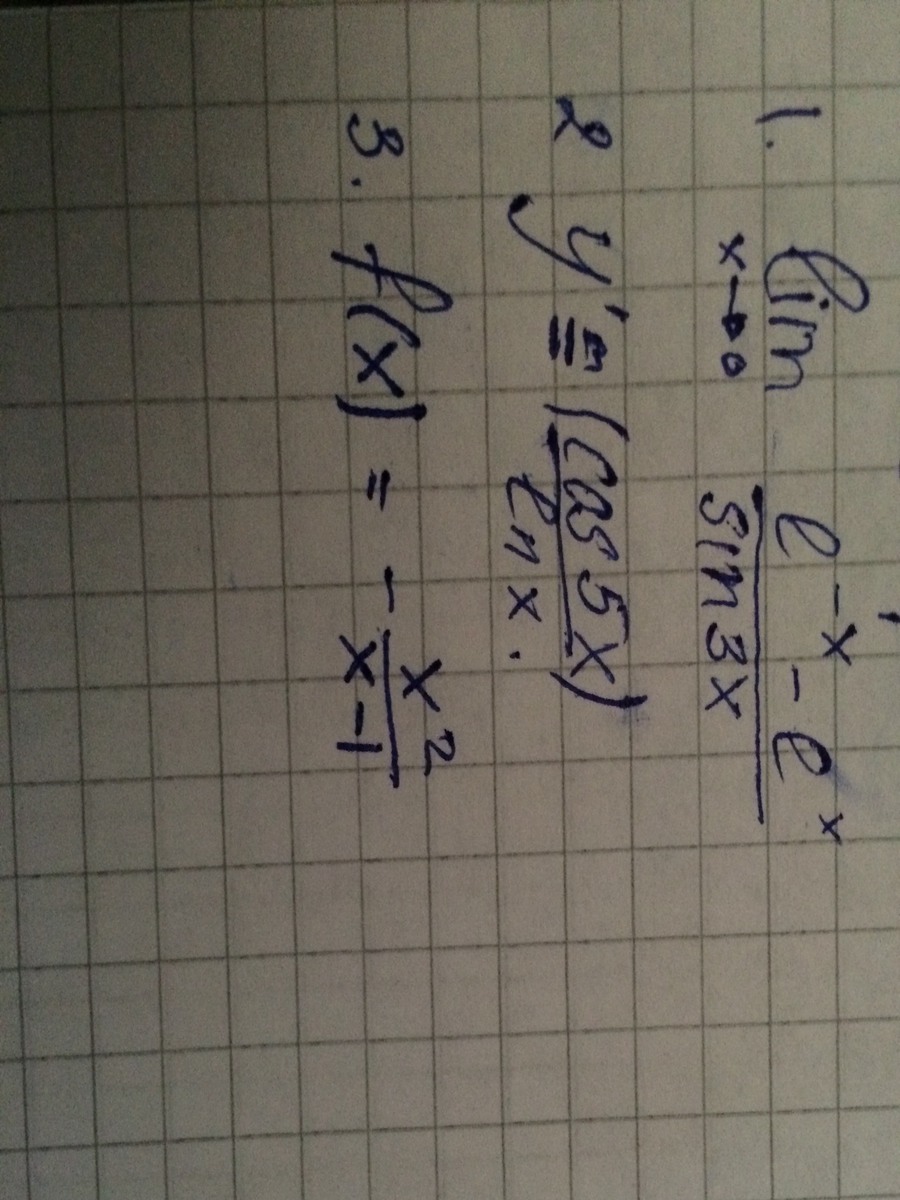 1. lim e^-x - e^x
x→0 sin 3x
2 y' = (cos 5x)
ln x.
3. f(x) = - x^2
x-1